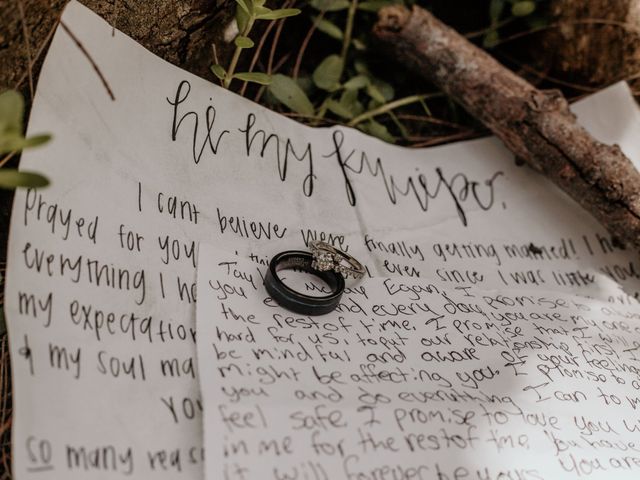 hi my
I cant believe were finally getting married! I
prayed for you ever since I was little
everything I
my expectation
& my soul ma
you
so many reas
Tay Egan, I promise
you and every day, you are my
the rest of time. I promise that I will
hard for us, to put our relationship first,
be mindful and aware of your feelings
might be affecting you. I promise to
you and do everything I can to
feel safe. I promise to love you
in me for the rest of time. You have
it will forever be yours. You are